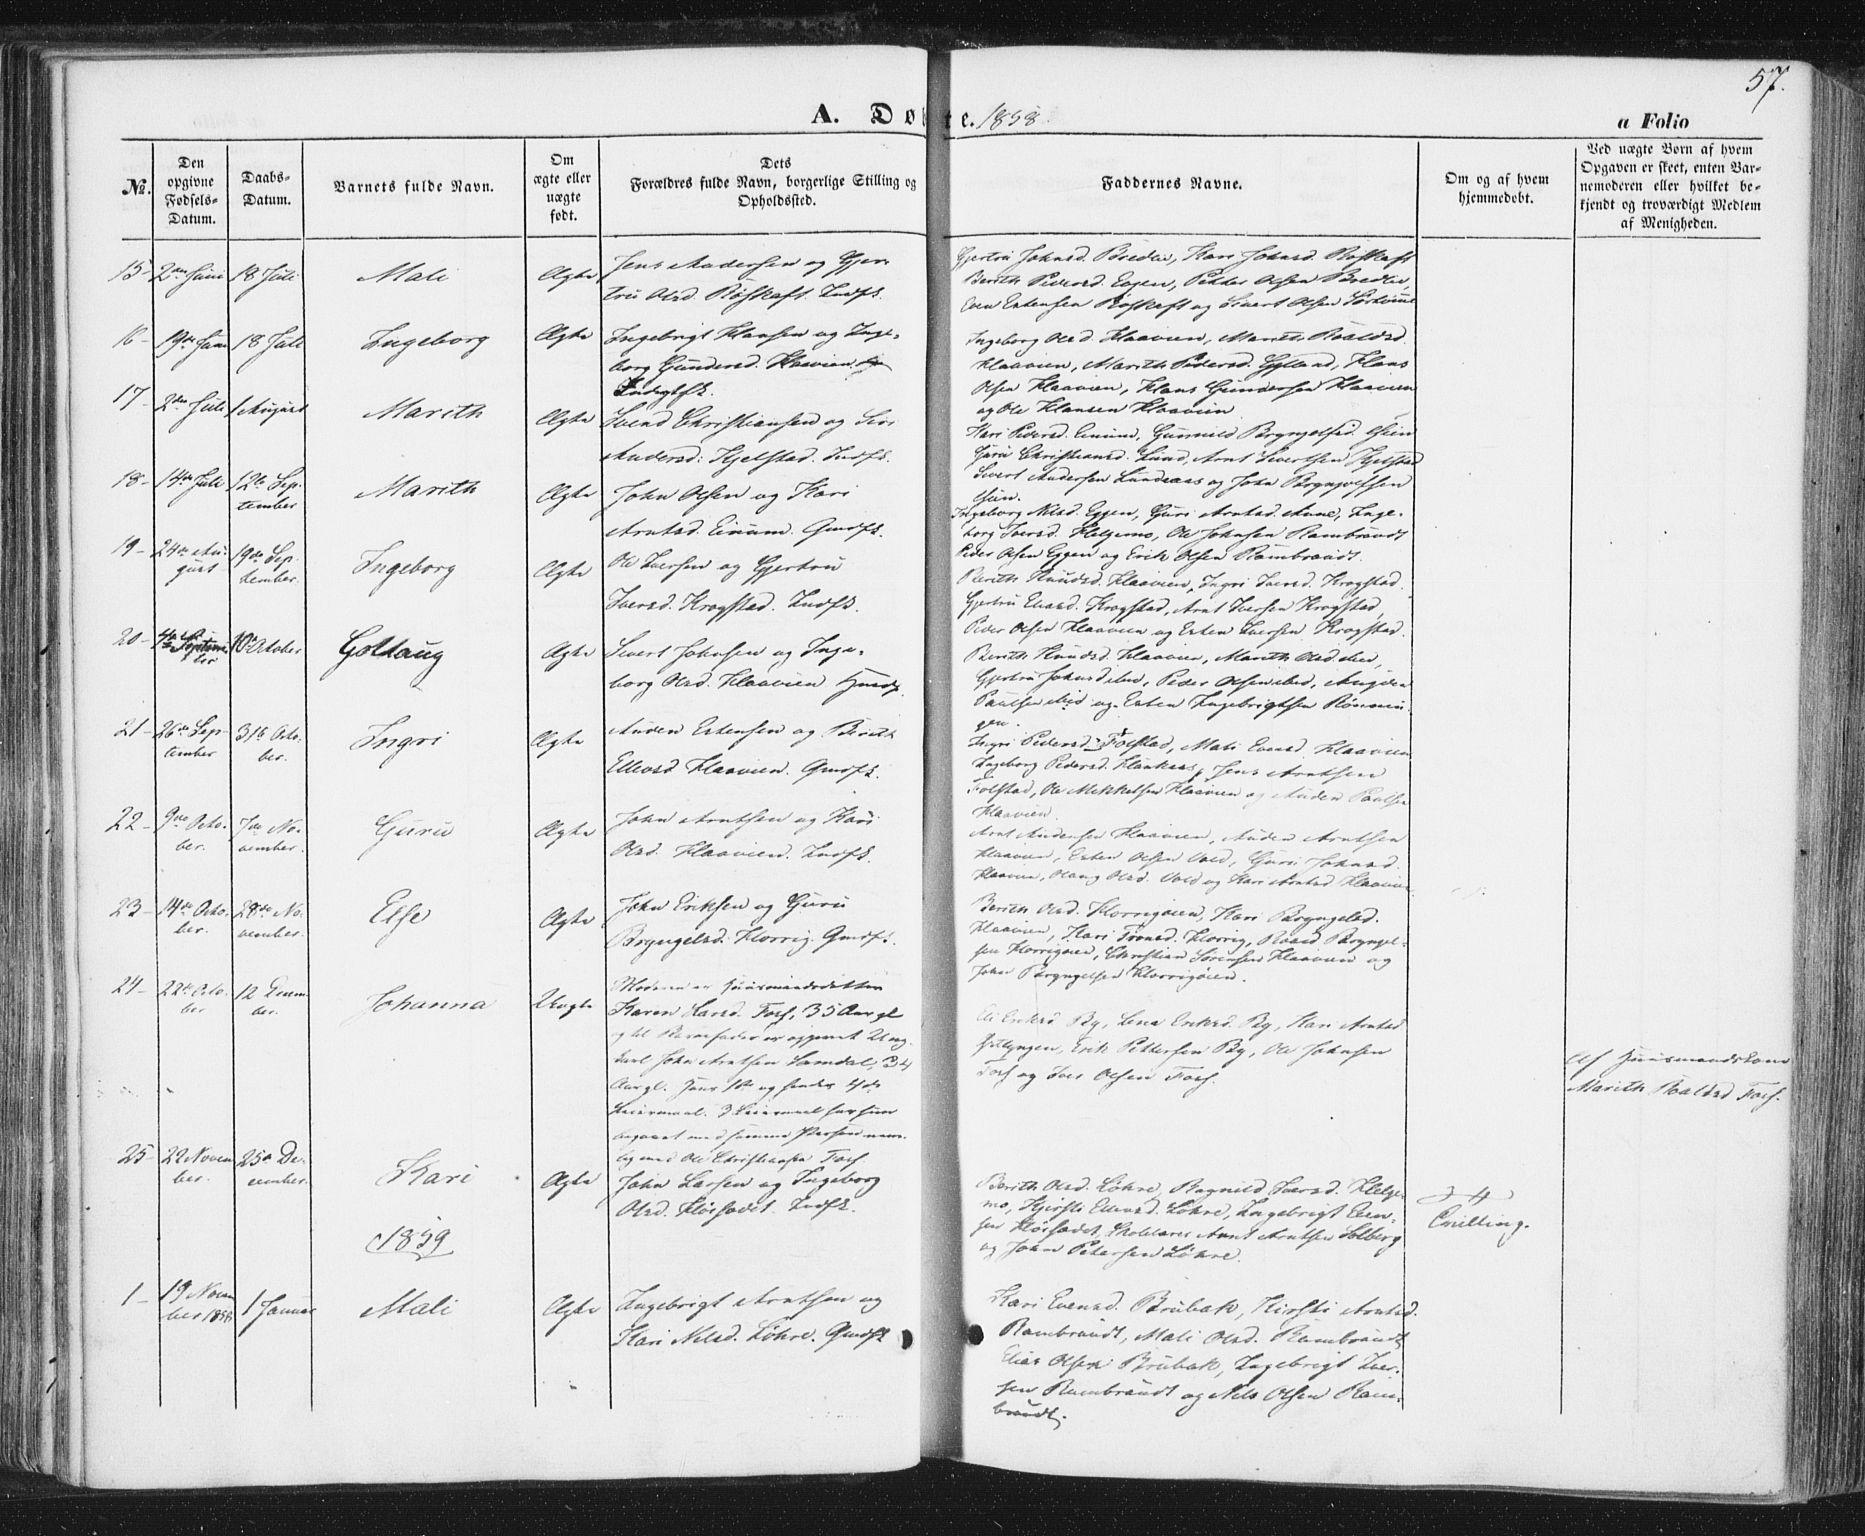 57.
A. Døbte. 1858
a Folio
№.
Den opgivne Fødsels-Datum.
Daabs-Datum.
Barnets fulde Navn.
Om ægte eller uægte født.
Dets Forældres fulde Navn, borgerlige Stilling og Opholdssted.
Faddernes Navne.
Om og af hvem hjemmedøbt.
Ved uægte Børn af hvem Opgaven er skeet, enten Barnemoderen eller hvilket bekjendt og troværdigt Medlem af Menigheden.
15- 2den Juni 18 Juli Mali Ægte
Jens Andersen og Gjer-
tru Olsd. Røskaft. Indfsk.
Gjertru Johnsd. Bredlie, Kari Johnsd. Røskaft
Berith Pedersd. Eggen, Petter Olsen Bredlie,
Even Estensen Røskaft og Sivert Olsen
16- 19de Juni 18 Juli Ingeborg Ægte
Ingebrigt Hansen og Inge-
borg Gundersd. Haavien
Ingeborg Olsd. Haavien, Marith Roaldsd.
Haavien, Marith Pedersd. Gylland, Hans
Olsen Haavien, Hans Gundersen Haavien
og Ole Hansen Haavien
17- 2den Juli 1 August Marith Ægte
Svend Christiansen og Siri
Andersd. Kjelstad. Indfsk.
Kari Pedersd. Einum, Gunnild Bryngelsd.
Guru Christiansd. Lund, Arnt Sivertsen Kjelstad
Sivert Andersen Lundaas og John Bryngelfsen
18- 14de Juli 12te September Marith Ægte
John Olsen og Kari
Arntsd. Einum. Gmdfsk.
Ingeborg Nilsd. Eggen, Guri Arntsd. Aune, Inge-
borg Iversd. Helgemo, Ole Johnsen Rambraudt
Peder Olsen Eggen og Erik Olsen Rambraudt.
19- 24de August 19de September Ingeborg Ægte
Ole Iversen og Gjertru
Iversd. Krogstad. Indfsk.
Berith Knudsd. Haavien, Ingri Iversd. Krogstad.
Gjertru Evensd. Krogstad, Arnt Iversen Krogstad
Peder Olsen Haavien og Esten Iversen Krogstad.
20- September 10de October Gollaug Ægte
Sivert Johnsen og Inge-
borg Olsd. Haavien
Berith Knudsd. Haavien, Marith Olsd. ibid,
Gjertru Johnsd. ibid, Peder Olsen ibid,
Paulsen ibid og Esten Ingebrigtsen Rønnin-
gen.
21- 26de September 31te October Ingri Ægte
Anden Estensen og Berith
Ellevsd Haavien. Gmdfsk.
Ingri Pedersd. Folstad, Mali Evensd. Haavien
Ingeborg Pedersd. Jens Arntsen
Folstad, Ole Mikkelsen Haavien og Anden Paulsen
Haavien.
22- 9de October 7de November Guru Ægte
John Arntsen og Kari
Olsd. Haavien. Indfsk.
Arnt Andersen Haavien, Anden Arntsen
Haavien, Esten Olsen Vold, Guri Johnsd.
Haavien, Olaug Olsd. Vold og Kari Arntsd Haavien
23- 14de October 28de November Else Ægte
John Eriksen og Guru
Bryngelsd. Horrig. Gmdfsk.
Berith Olsd. Horrigøien, Kari Bryngelsd.
Haavien, Kari Tronsd. Horrig, Roald Bryngel-
sen Horrigøien, Christian Sørensen Haavien og
John Bryngelsen Horrigøien.
24- 22de October 12 December Johanna Uægte
Moderen er Huusmandsdatter
Karen Larsd. Foss, 35 Aar gl
og til Barnefader er opgivet Ung-
karl John Arntsen Samdal, 34
Aar gl.
Leiermaal. 3 Leiermaal har hun
begaaet med samme Person nem-
lig med Ole Christiansen Foss
Eli Eriksd By, Lena Eriksd. By, Kari Arntsd
Erik Pettersen By, Ole Johnsen
Foss og Iver Olsen Foss.
Af Huusmandskone
Marith Roaldsd Foss.
25- 22 November 25de December Kari Ægte
John Larsen og Ingeborg
Olsd. Høisadet. Indfsk.
Berith Olsd. Løhre, Ragnild Iversd. Helge-
mo, Kjersti Ellevsd. Løhre, Ingebrigt Even-
sen Høisadet, Skolelærer Arnt Arntsen Solberg
og John Petersen Løhre.
Tvilling.
1859
1- 19 November 1858 1 Januar Mali Ægte
Ingebrigt Arntsen og
Kari Nilsd. Løhre. Gmdfsk
Kari Evensd. Brubak, Kirsti Arntsd.
Rambraudt, Mali Olsd. Rambraudt
Elias Olsen Brubak, Ingebrigt Iver-
sen Rambraudt og Nils Olsen Ram-
braudt.